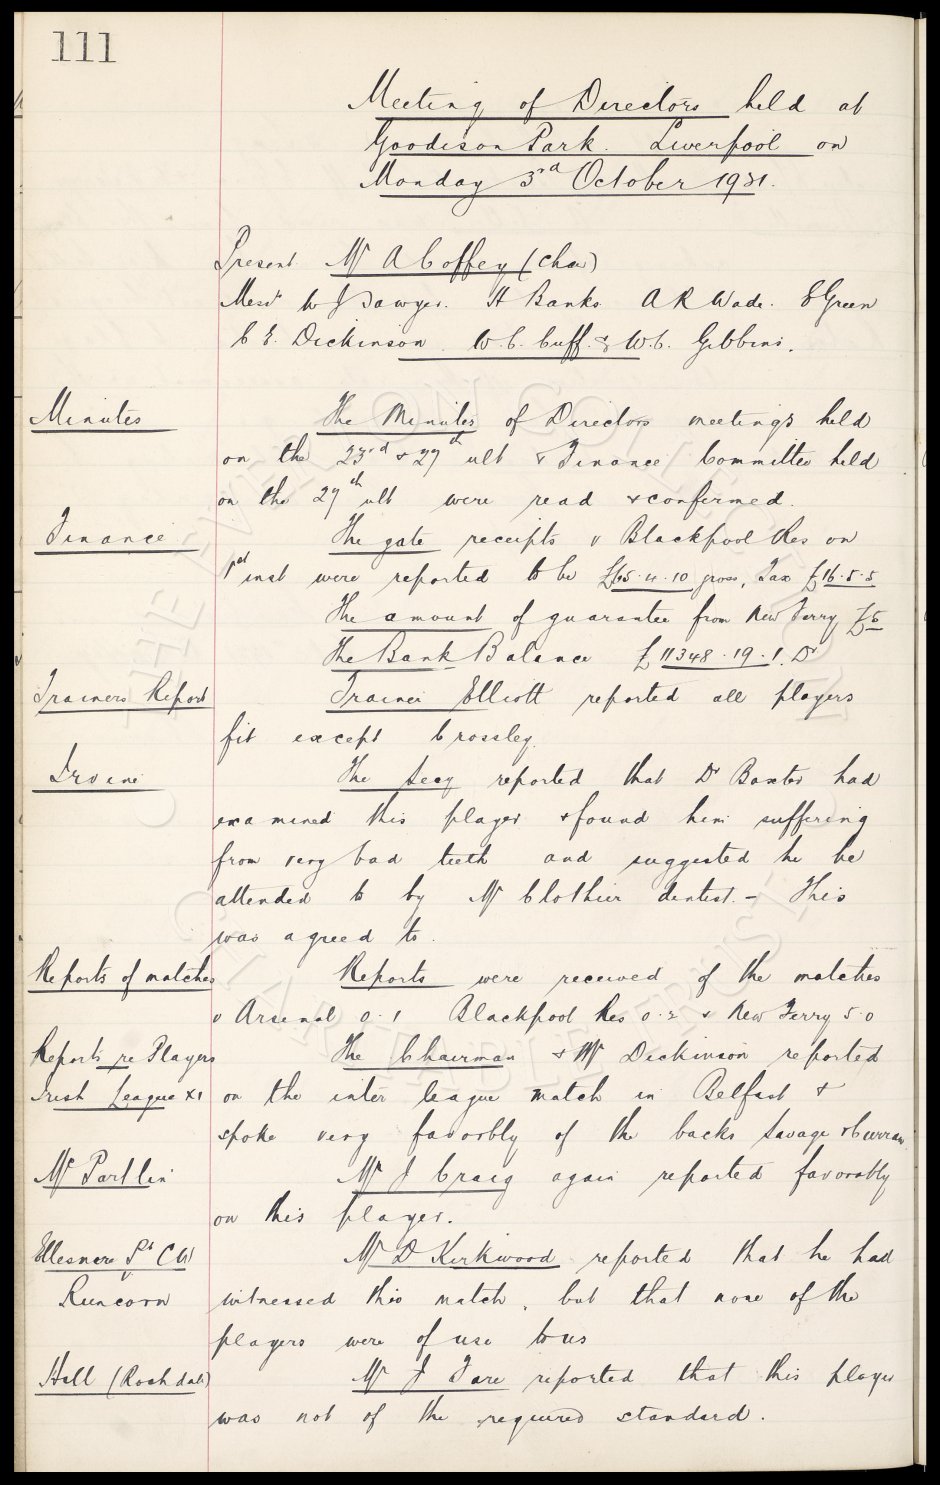 111
Meeting of Directors held at
Goodison Park. Liverpool on
Monday 3rd October 1921.
Present Mr A Coffey (Chair)
Messrs W J Sawyer. H Banks A R Wade. E Green
C E. Dickinson W. C. Cuff. & W. C. Gibbins.
Minutes The Minutes of Directors meetings held
on the 23rd & 27th ult & Finance Committee held
on the 27th ult were read & confirmed.
Finance The gate receipts v Blackpool Res on
1st inst were reported to be £65.4.10 gross, Tax £16.5.5
The amount of guarantee from New Ferry £5
The Bank Balance £11348.19.1. Dr
Trainers Report Trainer Elliott reported all players
fit except Crossley.
Irvine The Secy reported that Dr Baxter had
examined this player & found him suffering
from very bad teeth and suggested he be
attended to by Mr Clothier dentist. - This
was agreed to.
Reports of matches Reports were received of the matches
v Arsenal 0.1 Blackpool Res 0.2 & New Ferry 5.0
Reports re Players The Chairman & Mr Dickinson reported
Irish League XI on the inter league match in Belfast &
spoke very favorbly of the backs Savage & Curran
McPartlin Mr J Craig again reported favorably
on this player.
Ellesmere Pt C W Mr D Kirkwood reported that he had
v Runcorn witnessed this match, but that none of the
players were of use to us
Hall (Rochdale) Mr J Fare reported that this player
was not of the required standard.